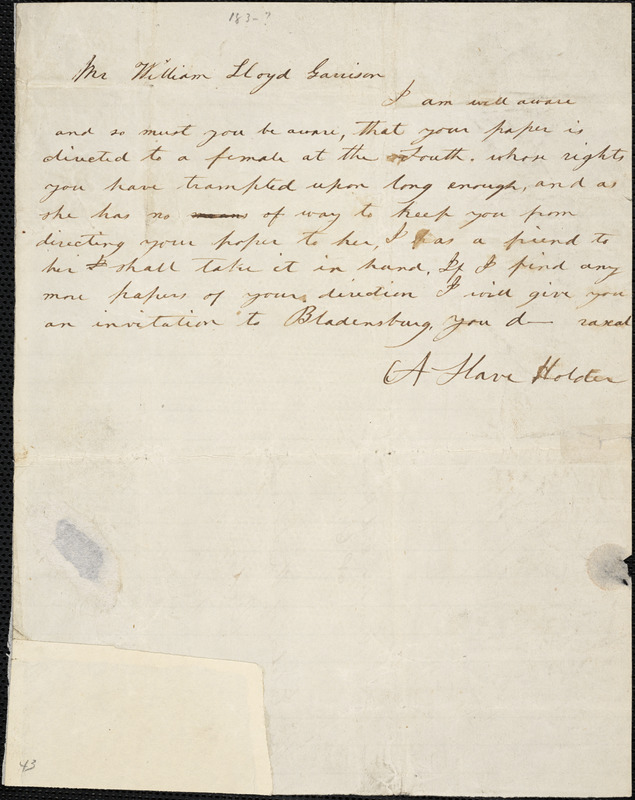 183-?
Mr William Lloyd Garrison
I am well aware
and so must you be aware, that your paper is
directed to a female at the South. whose rights
you have trampted upon long enough, and as
she has no means of way to keep you from
directing your paper to her, I as a friend to
her I shall take it in hand. If I find any
more papers of your direction I will give you
an invitation to Bladensburg. you d— raxal
A Slave Holder
43